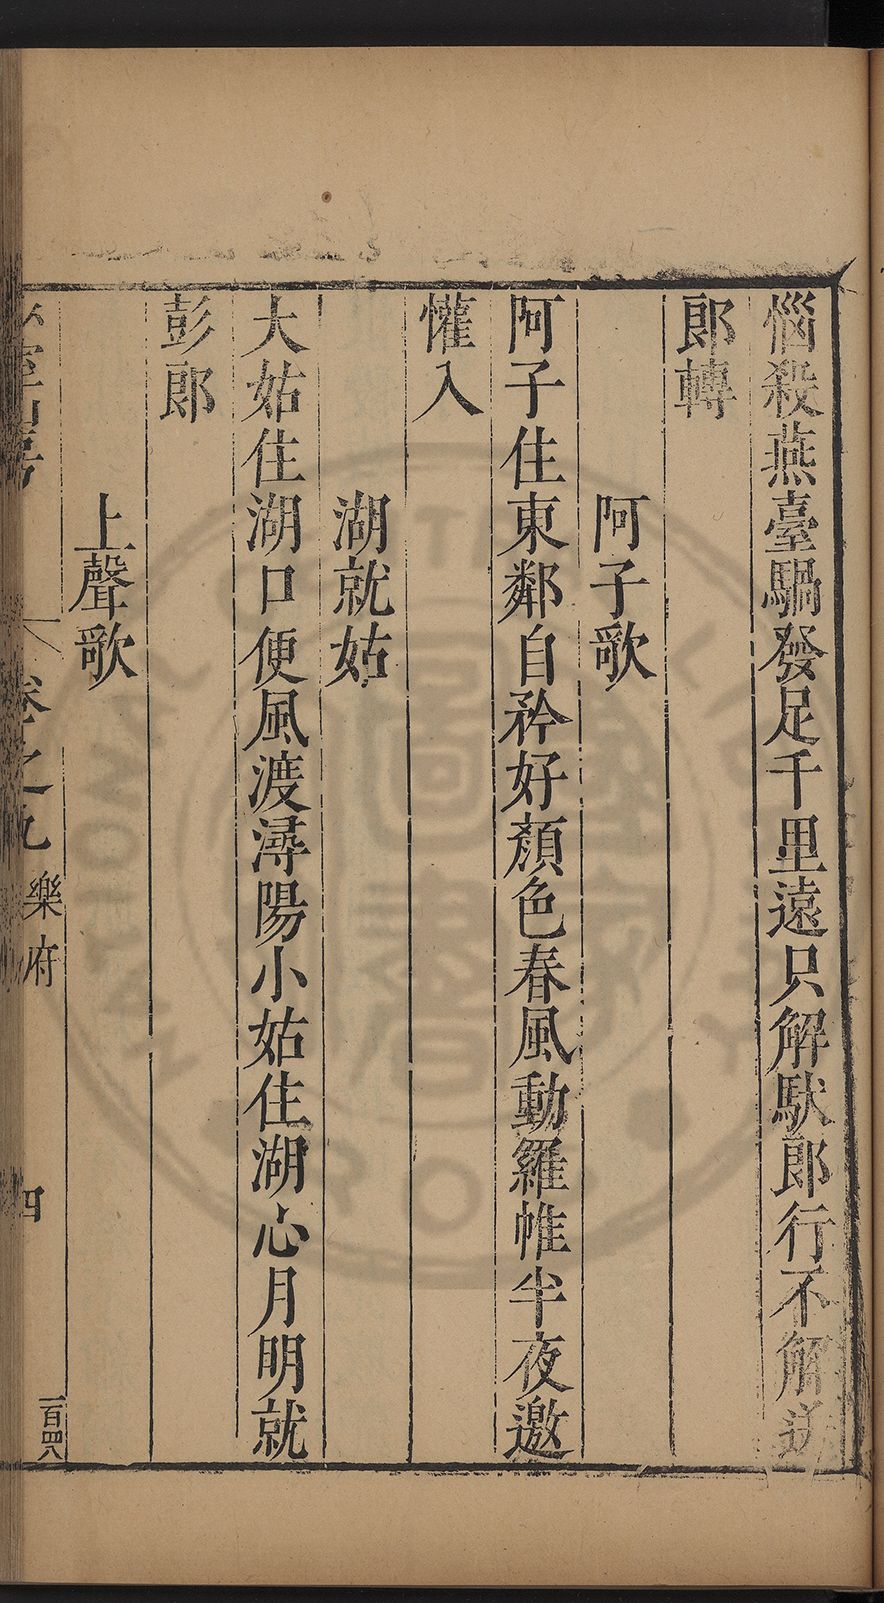 惱殺燕臺騧發足千里遠只解馱郎行不解送
郎轉
阿子歌
阿子住東鄰自矜好顏色春風動羅帷半夜邀
懽入
湖就姑
大姑住湖口便風渡潯陽小姑住湖心月明就
彭郎
上聲歌
卷之九 樂府 四 一百四八